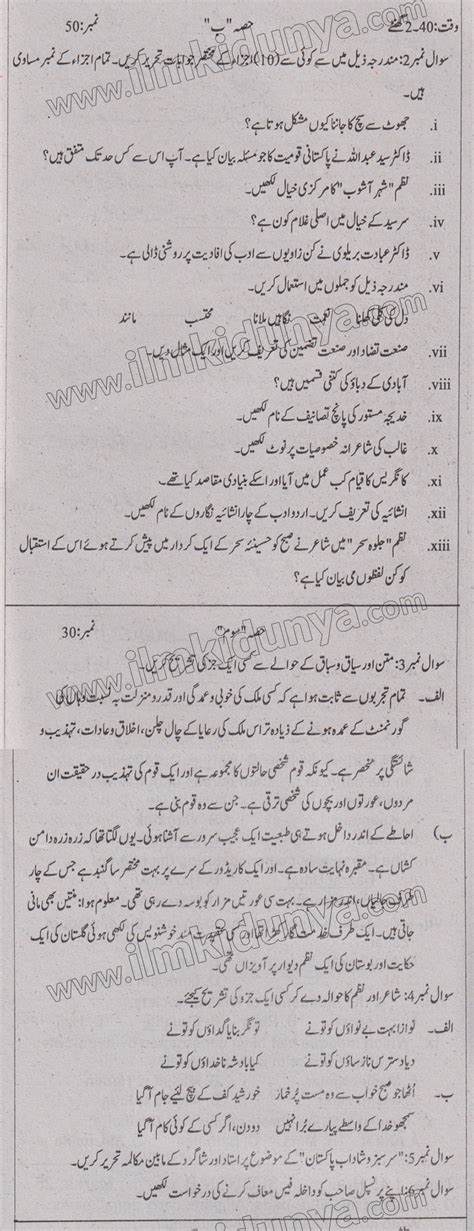 وقت:40-2 گھنٹے حصہ "ب" نمبر:50
سوال نمبر2: مندرجہ ذیل میں سے کوئی سے (10) اجزاء کے مختصر جوابات تحریر کریں۔ تمام اجزاء کے نمبر مساوی
ہیں۔
i. جھوٹ سے سچ کا جاننا کیوں مشکل ہوتا ہے؟
ii. ڈاکٹر سید عبداللہ نے پاکستانی قومیت کا جو مسئلہ بیان کیا ہے۔ آپ اس سے کس حد تک متفق ہیں؟
iii. نظم "شہر آشوب" کا مرکزی خیال لکھیں۔
iv. سرسید کے خیال میں اصلی غلام کون ہے؟
v. ڈاکٹر عبادت بریلوی نے کن زاویوں سے ادب کی افادیت پر روشنی ڈالی ہے۔
vi. مندرجہ ذیل کو جملوں میں استعمال کریں۔
دل کی کلی کھلنا نعمت نگاہیں ملانا محتسب مانند
vii. صنعت تضاد اور صنعت تضمین کی تعریف کریں اور ایک مثال دیں۔
viii. آبادی کے دباؤ کی کتنی قسمیں ہیں؟
ix. خدیجہ مستور کی پانچ تصانیف کے نام لکھیں۔
x. غالب کی شاعرانہ خصوصیات پر نوٹ لکھیں۔
xi. کانگریس کا قیام کب عمل میں آیا اور اسکے بنیادی مقاصد کیا تھے۔
xii. انشائیہ کی تعریف کریں۔ اردو ادب کے چار انشائیہ نگاروں کے نام لکھیں۔
xiii. نظم "جلوہ سحر" میں شاعر نے صبح کو حسینئہ سحر کے ایک کردار میں پیش کرتے ہوئے اس کے استقبال
کو کن لفظوں می بیان کیا ہے؟
حصہ "سوم" نمبر:30
سوال نمبر3: متن اور سیاق و سباق کے حوالے سے کسی ایک جز کی تشریح کریں۔
الف۔ تمام تجربوں سے ثابت ہوا ہے کہ کسی ملک کی خوبی و عمدگی اور قدر و منزلت بہ نسبت وہاں کی
گورنمنٹ کے عمدہ ہونے کے زیادہ تر اس ملک کی رعایا کے چال چلن، اخلاق و عادات، تہذیب و
شائستگی پر منحصر ہے۔ کیونکہ قوم شخصی حالتوں کا مجموعہ ہے اور ایک قوم کی تہذیب در حقیقت ان
مردوں، عورتوں اور بچوں کی شخصی ترقی ہے۔ جن سے وہ قوم بنی ہے۔
ب) احاطے کے اندر داخل ہوتے ہی طبیعت ایک عجیب سرور سے آشنا ہوئی۔ یوں لگتا تھا کہ ذرہ ذرہ دامن
کشاں ہے۔ مقبرہ نہایت سادہ ہے۔ اور ایک کاریڈور کے سرے پر بہت مختصر سا گنبد ہے جس کے چار
طرف جالیاں، اندر مزار ہے۔ بہت سی عورتیں مزار کو بوسہ دے رہی تھی۔ معلوم ہوا: منتیں بھی مانی
جاتی ہیں۔ ایک طرف خدمت گار کھڑا تھا۔ کسی عقیدت مند خوشنویس کی لکھی ہوئی گلستان کی ایک
حکایت اور بوستان کی ایک نظم دیوار پر آویزاں تھی۔
سوال نمبر4: شاعر اور نظم کا حوالہ دے کر کسی ایک جزو کی تشریح کیجئے۔
الف۔ نوازا بہت بے نواؤں کو تو نے تونگر بنایا گداؤں کو تو نے
دیا دسترس نارساؤں کو تو نے کیا بادشہ ناخداؤں کو تو نے
ب۔ اُٹھا جو صبح خواب سے وہ مست پُر خمار خورشید کف کے بیچ لئے جام آ گیا
سمجھو خدا کے واسطے پیارے بُرا نہیں دو دن، اگر کسی کے کوئی کام آ گیا
سوال نمبر5: "سرسبز و شاداب پاکستان" کے موضوع پر استاد اور شاگرد کے مابین مکالمہ تحریر کریں۔
سوال نمبر6: اپنے پرنسپل صاحب کو داخلہ فیس معاف کرنے کی درخواست لکھیں۔
www.ilmkidunya.com
www.ilmkidunya.com
www.ilmkidunya.com
www.ilmkidunya.com